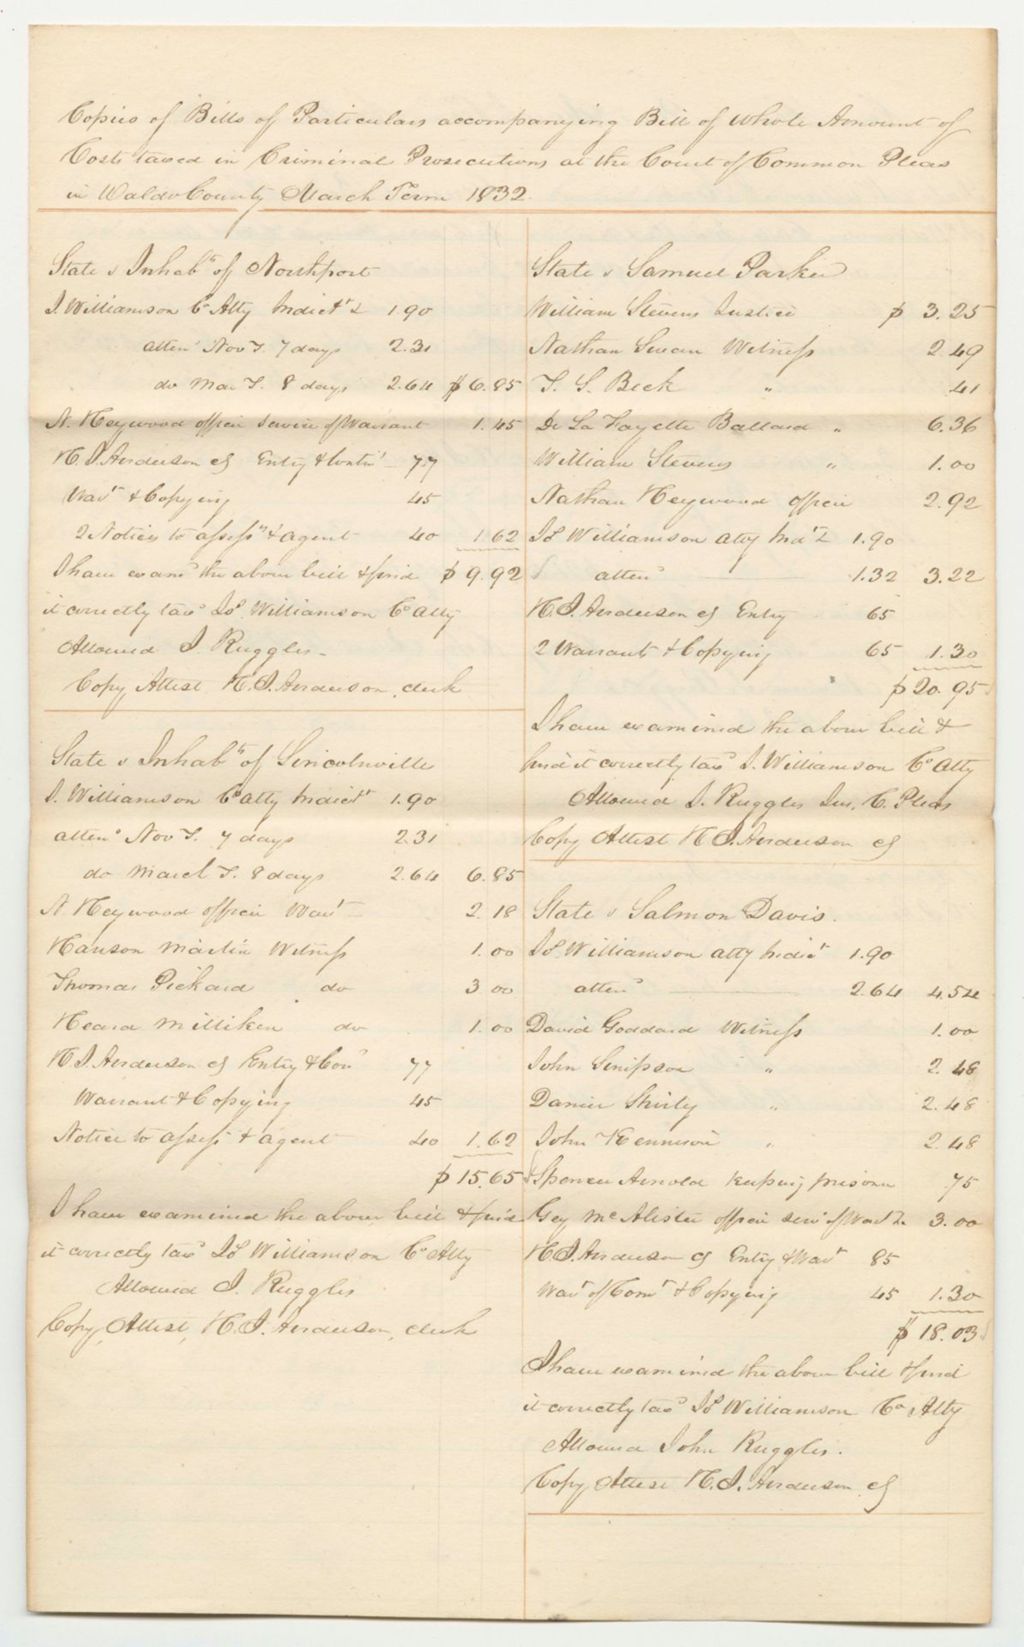 Copies of Bills of Particulars accompanying Bill of whole Amount of
Costs taxed in Criminal Prosecutions at the Court of Common Pleas
in Waldo County March Term 1832.
State v Inhabts of Northport
J. Williamson Co Atty Indictt & 1.90
attena Nov T. 7 days 2.31
do Mar T. 8 days 2.64 $6.85
N. Heywood officer service of Warrant 1.45
H. J. Anderson clk Entry & Contind 77
Wart & Copying 45
2 Notices to assessrs & agent 40 1.62
I have examd the above bill & find $9.92
it correctly taxd Jos. Williamson Co Atty
Allowed J. Ruggles
Copy Attest H. J. Anderson, clerk
State v Inhabts of Lincolnville
J. Williamson Co atty Indictt 1.90
attena Nov T. 7 days 2.31
do March T. 8 days 2.64 6.85
N. Heywood officer Wart 2.18
Hanson Martin Witness 1.00
Thomas Pickard do 3 00
Heard Milliken do 1.00
H. J. Anderson clk Entry & Con 77
Warrant & Copying 45
Notice to assess & agent 40 1.62
$15.65
I have examined the above bill & find
it correctly taxd Jos Williamson Co Atty
Allowed J. Ruggles
Copy, Attest, H. J. Anderson, clerk
State v Samuel Parker
William Stevens Justice $ 3.25
Nathan Swan Witness 2.49
T. S. Beck " 41
De La Fayette Ballard " 6.36
William Stevens " 1.00
Nathan Heywood officer 2.92
Jos Williamson atty Indt & 1.90
attena 1.32 3.22
H. J. Anderson clk Entry 65
2 Warrants & Copying 65 1.30
$20.95
I have examined the above bill &
find it correctly taxd J. Williamson Co Atty
Allowed J. Ruggles Jus. C. Pleas
Copy Attest H J. Anderson clk
State v Salmon Davis.
Jos. Williamson atty Indict 1.90
attena 2.64 4.54
David Goddard Witness 1.00
John Simpson " 2.48
Daniel Shirly " 2.48
John Kennison " 2.48
Spencer Arnold keeping prisoner 75
Mc Alister officer serv of Wart & 3.00
H. J. Anderson clk Entry & Wart 85
Wart of Comt & Copying 45 1.30
$ 18.03
I have examined the above bill & find
it correctly taxd Jos Williamson Co Atty
Allowed John Ruggles.
Copy Attest H. J. Anderson clk